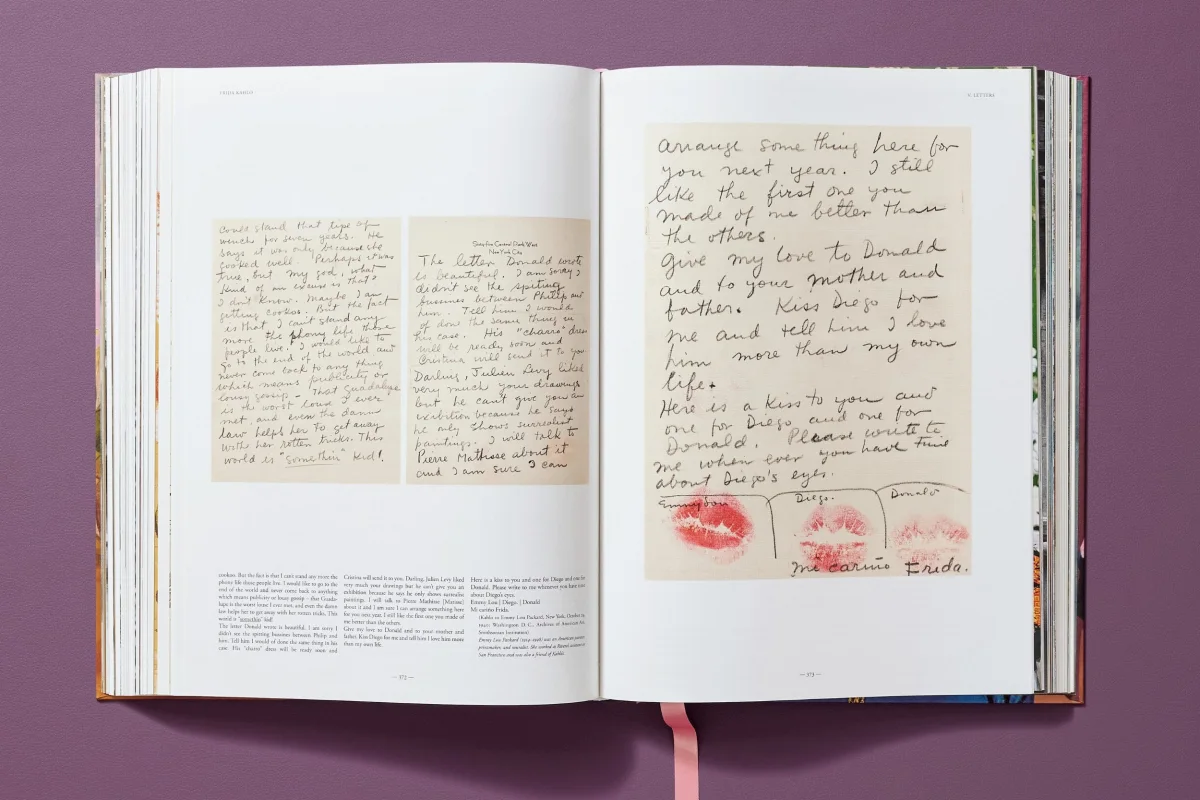 FRIDA KAHLO
could stand that type of
wench for seven years. He
says it was only because she
cooked well. Perhaps it was
true, but my god, what
kind of an excuse is that?
I don't know. Maybe I am
getting cookoo. But the fact
is that I can't stand any
more the phony life those
people live. I would like to
go to the end of the world and
never come back to any thing
which means publicity or
lousy gossip - That Guadalupe
is the worst louse I ever
met, and even the damn
law helps her to get away
with her rotten tricks. This
world is "somethin" kid!
New York City
The letter Donald wrote
is beautiful. I am sorry I
didn't see the spitting
bussines between Philip and
him. Tell him I would
of done the same thing in
his case. His "charro" dress
will be ready soon and
Cristina will send it to you
Darling, Julien Levy liked
very much your drawings
but he can't give you an
exibition because he says
he only shows surrealist
paintings. I will talk to
Pierre Mathisse about it
and I am sure I can
cookoo. But the fact is that I can't stand any more the
phony life those people live. I would like to go to the
end of the world and never come back to anything
which means publicity or lousy gossip - that Guada-
lupe is the worst louse I ever met, and even the damn
law helps her to get away with her rotten tricks. This
world is "somethin" kid!
The letter Donald wrote is beautiful. I am sorry I
didn't see the spitting bussines between Philip and
him. Tell him I would of done the same thing in his
case. His "charro" dress will be ready soon and
Cristina will send it to you. Darling, Julien Levy liked
very much your drawings but he can't give you an
exibition because he says he only shows surrealist
paintings. I will talk to Pierre Matisse [Matisse]
about it and I am sure I can arrange something here
for you next year. I still like the first one you made of
me better than the others.
Give my love to Donald and to your mother and
father. Kiss Diego for me and tell him I love him more
than my own life.
Here is a kiss to you and one for Diego and one for
Donald. Please write to me whenever you have time
about Diego's eyes.
Emmy Lou | Diego | Donald
Mi cariño Frida.
(Kahlo to Emmy Lou Packard, New York, October
Washington D. C., Archives of American Art,
Smithsonian Institution)
Emmy Lou Packard was an American painter,
printmaker and muralist. She worked as Rivera's assistant in
San Francisco and was also a friend of Kahlo's.
— 372 —
V. LETTERS
arrange some thing here for
you next year. I still
like the first one you
made of me better than
the others.
Give my love to Donald
and to your mother and
father. Kiss Diego for
me and tell him I love
him more than my own
life.
Here is a kiss to you and
one for Diego and one for
Donald. Please write to
me when ever you have time
about Diego's eyes.
Emmylou Diego. Donald
Mi cariño Frida.
— 373 —